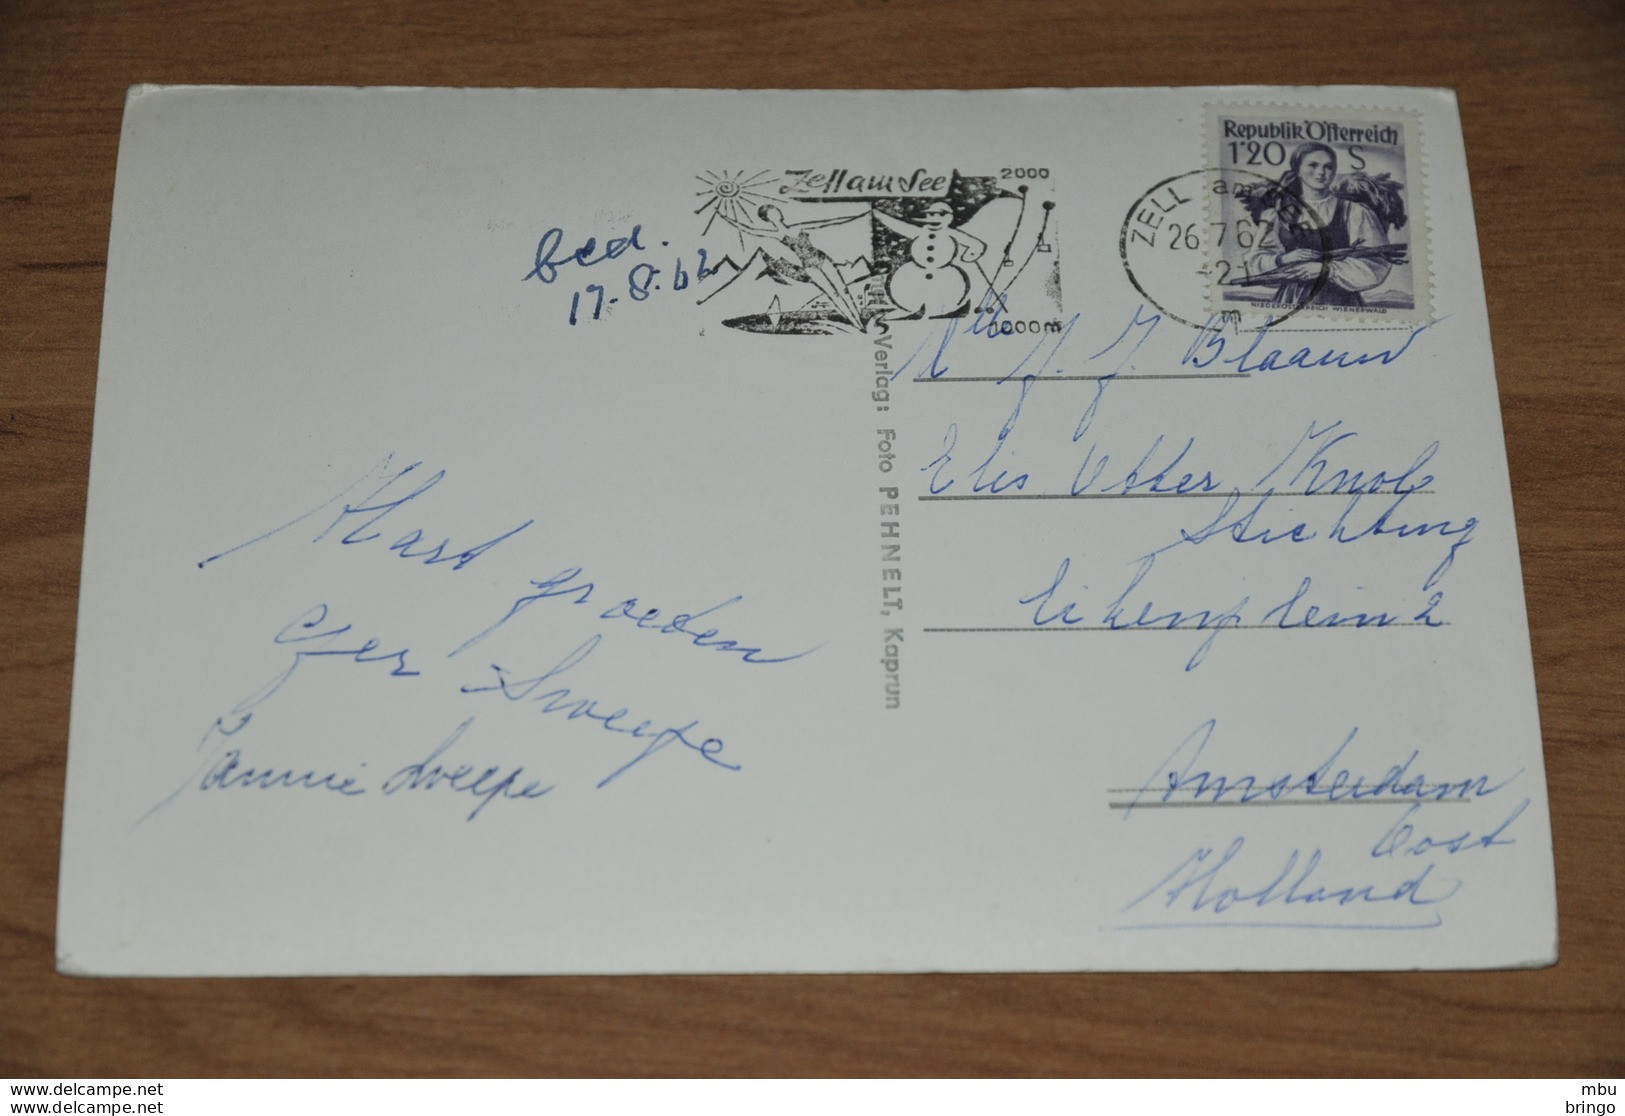 bed.
17-8-62
Zell am See
2000
1000 m
ZELL am SEE
26.7.62-21
m
Republik Österreich
1'20 S
NIEDERÖSTERREICH WIENERWALD
Verlag: Foto PEHNELT, Kaprun
Hart groeten
Ger Sweepe
Jannie Sweepe
J. J. Blaauw
Elis Otter Knol
Stichting
Eikenplein 2
Amsterdam
Oost
Holland
www.delcampe.net
www.delcampe.net
mbu
bringo